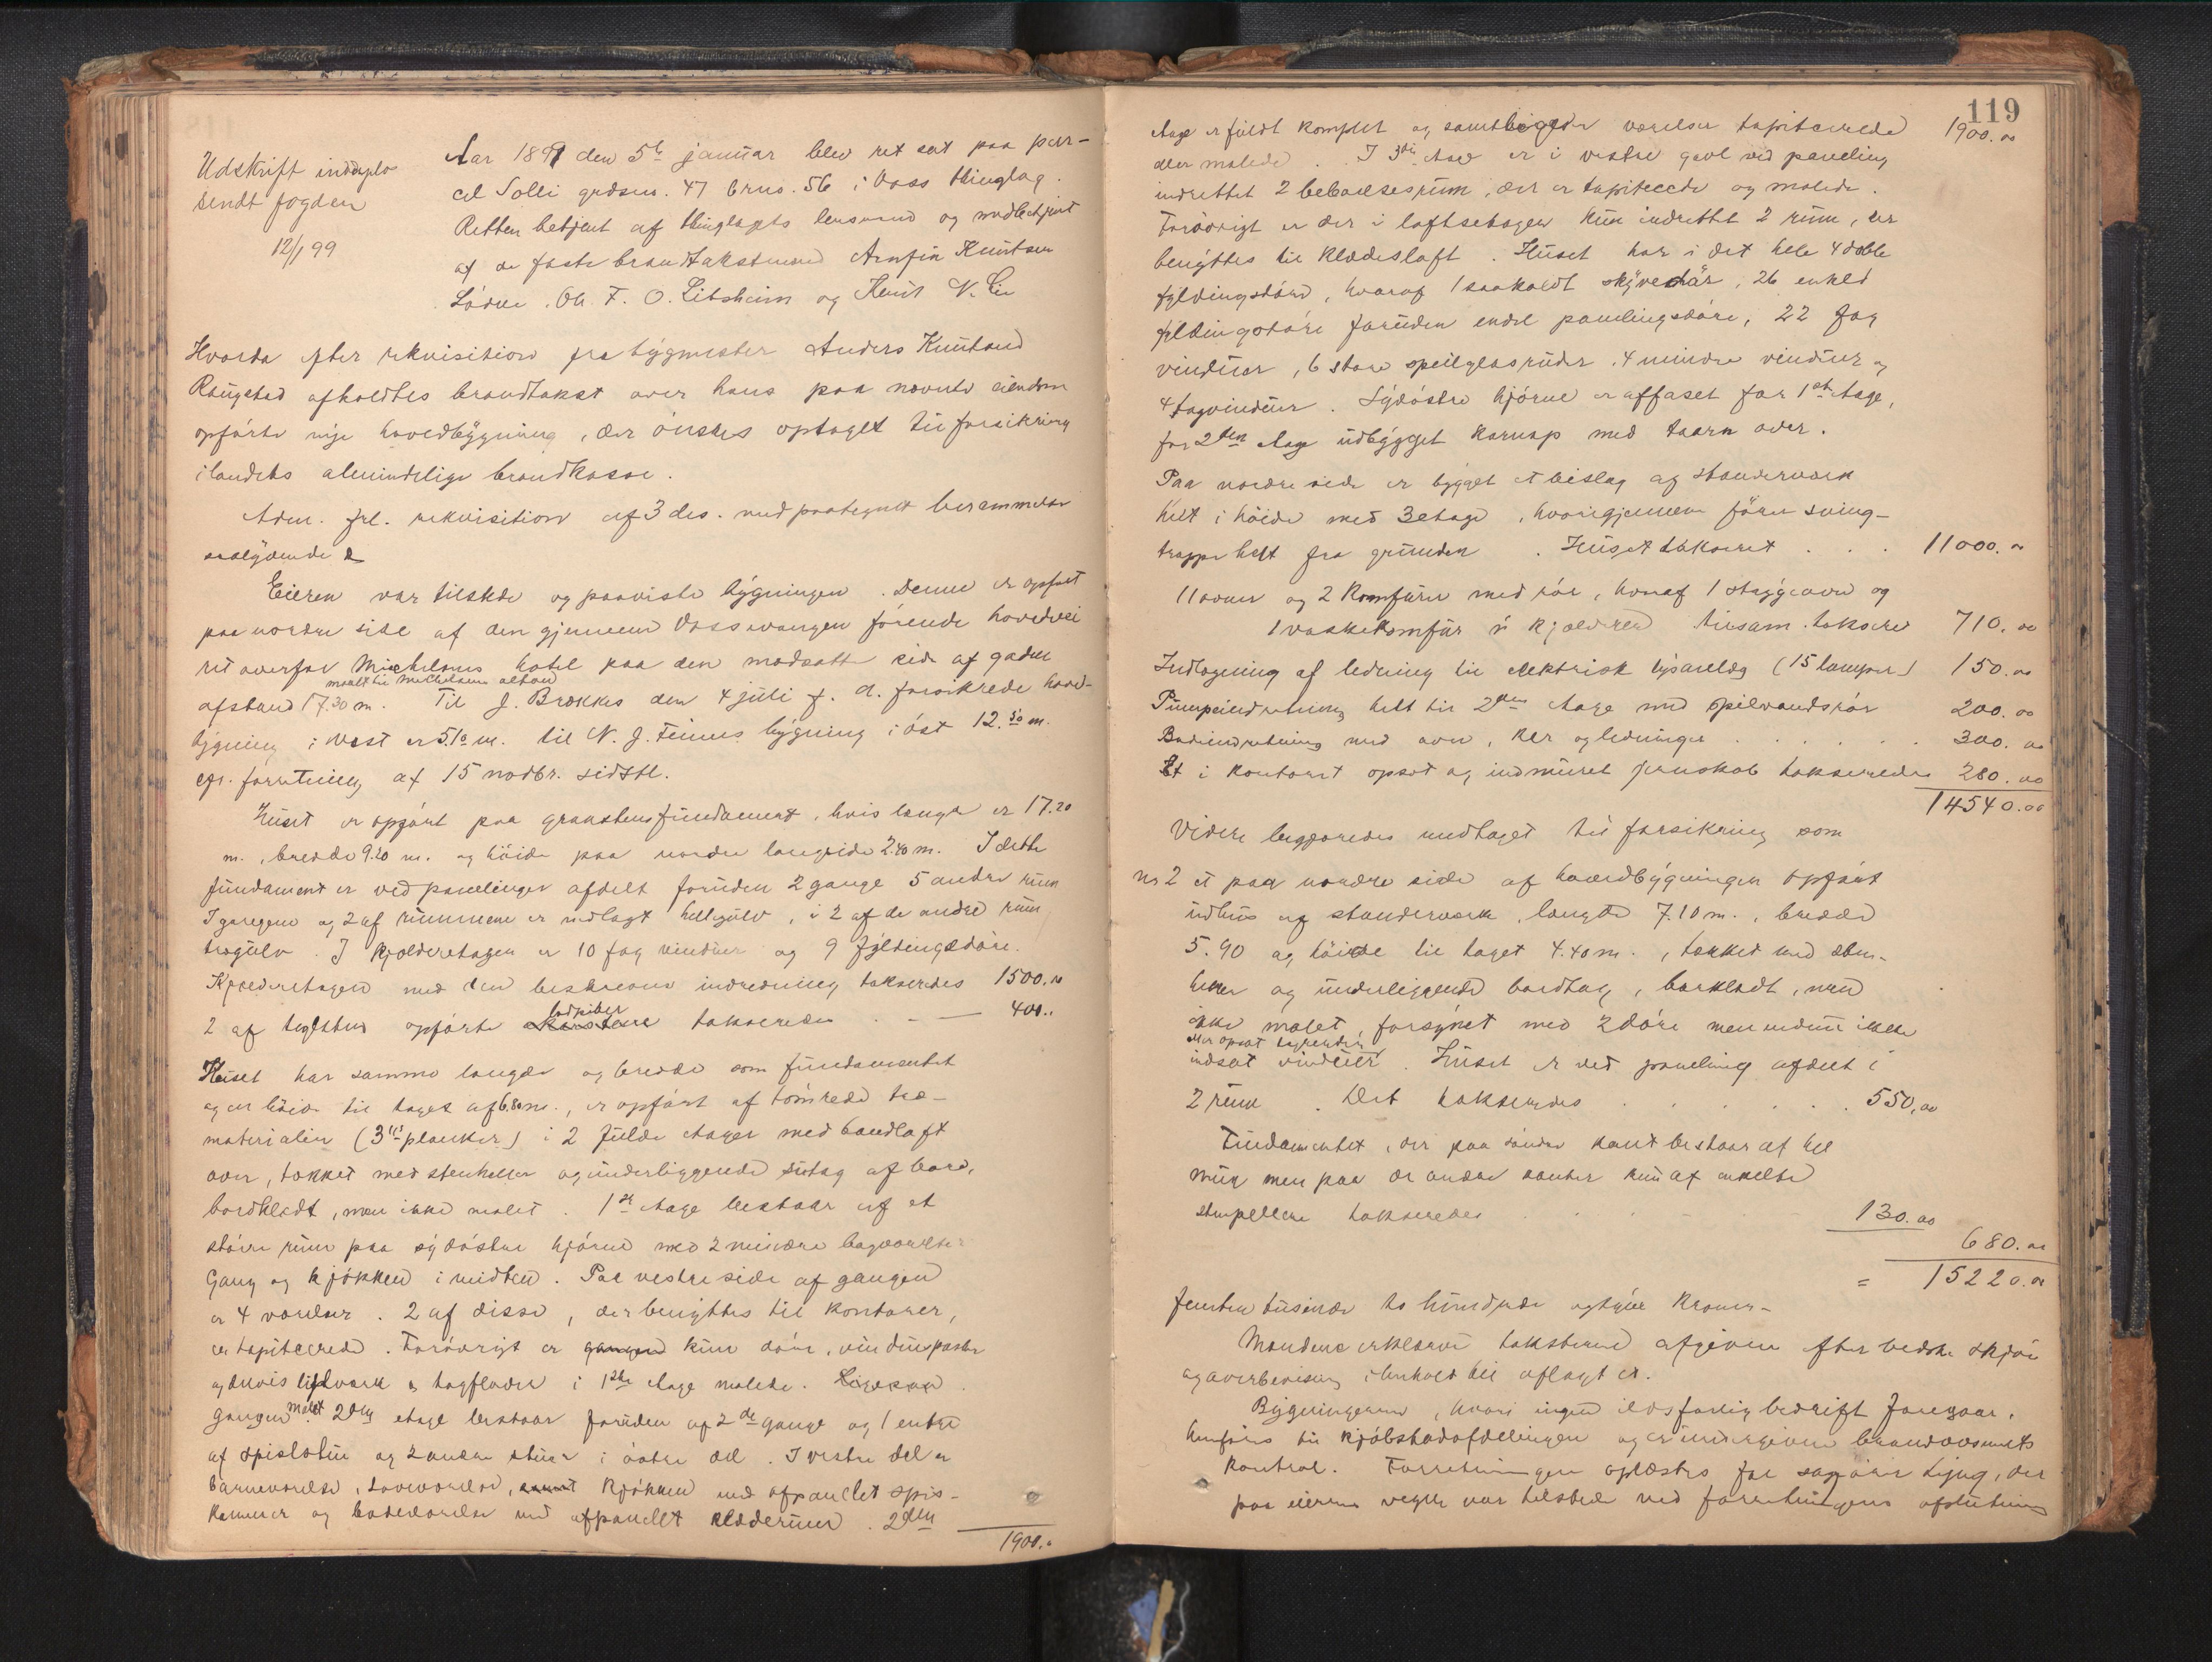 Udskrift indduplo
sendt fogden
12/1 99
Aar 1899 den 5te januar blev ret sat paa par-
cel Solli grdsnr. 47 brns. 56 i Voss thinglag.
Retten betjent af thinglagets lensmand og medbetjent
af de faste brandtakstmænd Arnfin Knutsen
Lödve, Ol. T. O. Litsheim og Knut N. Lie
Hvorda efter rekvisition fra bygmester Anders Knutsand
Raugstad afholdtes brandtakst over hans paa nævnte eiendom
opförte nye hovedbygning, der önskes optaget til forsikring
i landets almindelige brandkasse.
Adm. frl. rekvisition af 3 des. med paategnet berammelse
saalydende
Eieren var tilstede og paaviste bygningen. Denne er opfört
paa nordre side af den gjennem Vossevangen förende hovedvei
ret overfor Michelsens hotel paa den modsatte side af gaden
maalt til Michelsens altan
afstand 17.30 m. Til J. Brækkes den 4 juli f. a. forsikrede hoved-
bygning i vest er 5.10 m. til N. J. Finnes bygning i öst 12.50 m.
efr. forretning af 15 novbr. sidstl.
Huset er opfört paa graastensfundament, hvis længde er 17.20
m., bredde 9.20 m. og höide paa nordre langside 2.40 m. I dette
fundament er ved panelinger afdelt foruden 2 gange 5 andre rum
I gangene og 2 af rummene er nedlagt hellegulv, i 2 af de andre rum
trægulv. I kjelderetagen er 10 fag vinduer og 9 fyldingsdöre.
Kjælderetagen med den beskrevne indredning takseredes 1500.00
2 af teglsten opförte skorstene ladpiber takseredes . - — 400..
Huset har samme længde og bredde som fundamentet
og en höide til taget af 6.80 m., er opfört af tömrede træ-
materialier (3"' planker) i 2 fulde etager med bandloft
over, tækket med stenheller og underliggende sutag af bord,
bordklædt, men ikke malet. 1ste etage bestaar af et
större rum paa sydöstre hjörne med 2 mindre bagværelser
Gang og kjökken i midten. Paa vestre side af gangen
er 4 værelser. 2 af disse, der benyttes til kontorer,
er tapitserede. Forövrigt er gangen kun döre, vinduposter
og delvis listværk & tagflader i 1ste etage malede. Ligesaa
gangen malet 2den etage bestaar foruden af 2de gange og 1 entre
af spisestue og 2 andre stuer i östre del. I vestre del er
barneværelse, soveværelse, samt kjökken med afpanelet spis-
kammer og badeværelse med afpanelt klæderum. 2den
1900..
119
1900.00
etage er fuldt komplet og samtlige der værelser tapitserede
eller malede. I 3die etage er i vestre gavl ved paneling
indrettet 2 beboelsesrum, der er tapitserede og malede.
Forövrigt er der i loftsetagen kun indrettet 2 rum, der
benyttes til klædesloft. Huset har i det hele 4 doble
fyldingsdöre, hvoraf 1 saakaldt skyvedör, 26 enkelt
fyldingsdöre foruden endel panelingsdöre, 22 fag
vinduer, 6 store speilglasruder, 4 mindre vinduer og
4 tagvinduer. Sydöstre hjörne er affaset for 1ste etage,
for 2den etage udbygget karnap med taarn over.
Paa nordre side er bygget et bislag af standerværk
helt i höide med 3 etage, hvorigjennem förer sving-
trappe helt fra grunden. Huset takseret . . . 11000.00
11 ovner og 2 komfurer med rör, hvoraf 1 strygeovn og
1 vaskekomfur i kjælderen tilsam. takseret 710.00
Indlægning af ledning til elektrisk lysanlæg (15 lamper) 150.00
Pumpeindretning helt til 2den etage med spilvandsrör 200.00
Badeindretning med ovn, kar og ledninger . . . . . 300.00
Et i kontoret opsat og indmuret jernskab takseredes 280.00
14540.00
Videre begjæredes medtaget til forsikring som
no 2 et paa nordre side af hovedbygningen opfört
udhus af standerværk, længde 7.10 m., bredde
5.90 og höide til taget 4.40 m., tækket med sten-
heller og underliggende bordtag, bordklædt, men
ikke malet, forsynet med 2 döre men endnu ikke
eller opsat tagrender
indsat vinduer. Huset er ved paneling afdelt i
2 rum. Det takseredes . . . . . . 550.00
Fundamentet, der paa söndre kant bestaar af hel
mur men paa de andre kanter kun af enkelte
stenpillere takseredes . . . 130.00
680.00
= 15220.00
femten tusinde to hundrede og tyve kroner-
Mændene erklærer taksterne afgivne efter bedste skjön
og overbevisning i henhold til aflagt ed.
Bygningerne, hvori ingen ildsfarlig bedrift foregaar,
henföres til kjöbstadafdelingen og er undergivne brandvæsenets
kontrol. Forretningen oplæstes for sagförer Ljug, der
paa eierens vegne var tilstede ved forretningens afslutning